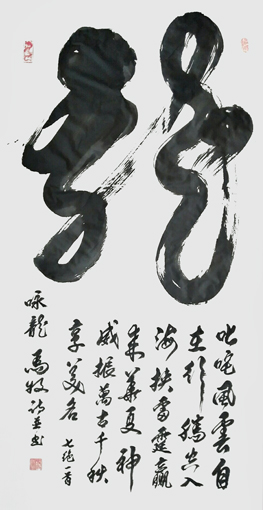 龍
叱咤風雲自
在行騰空入
海挾雷霆贏
來華夏神
威振萬古千秋
享美名 七絕一首
詠龍 馬牧詩並書